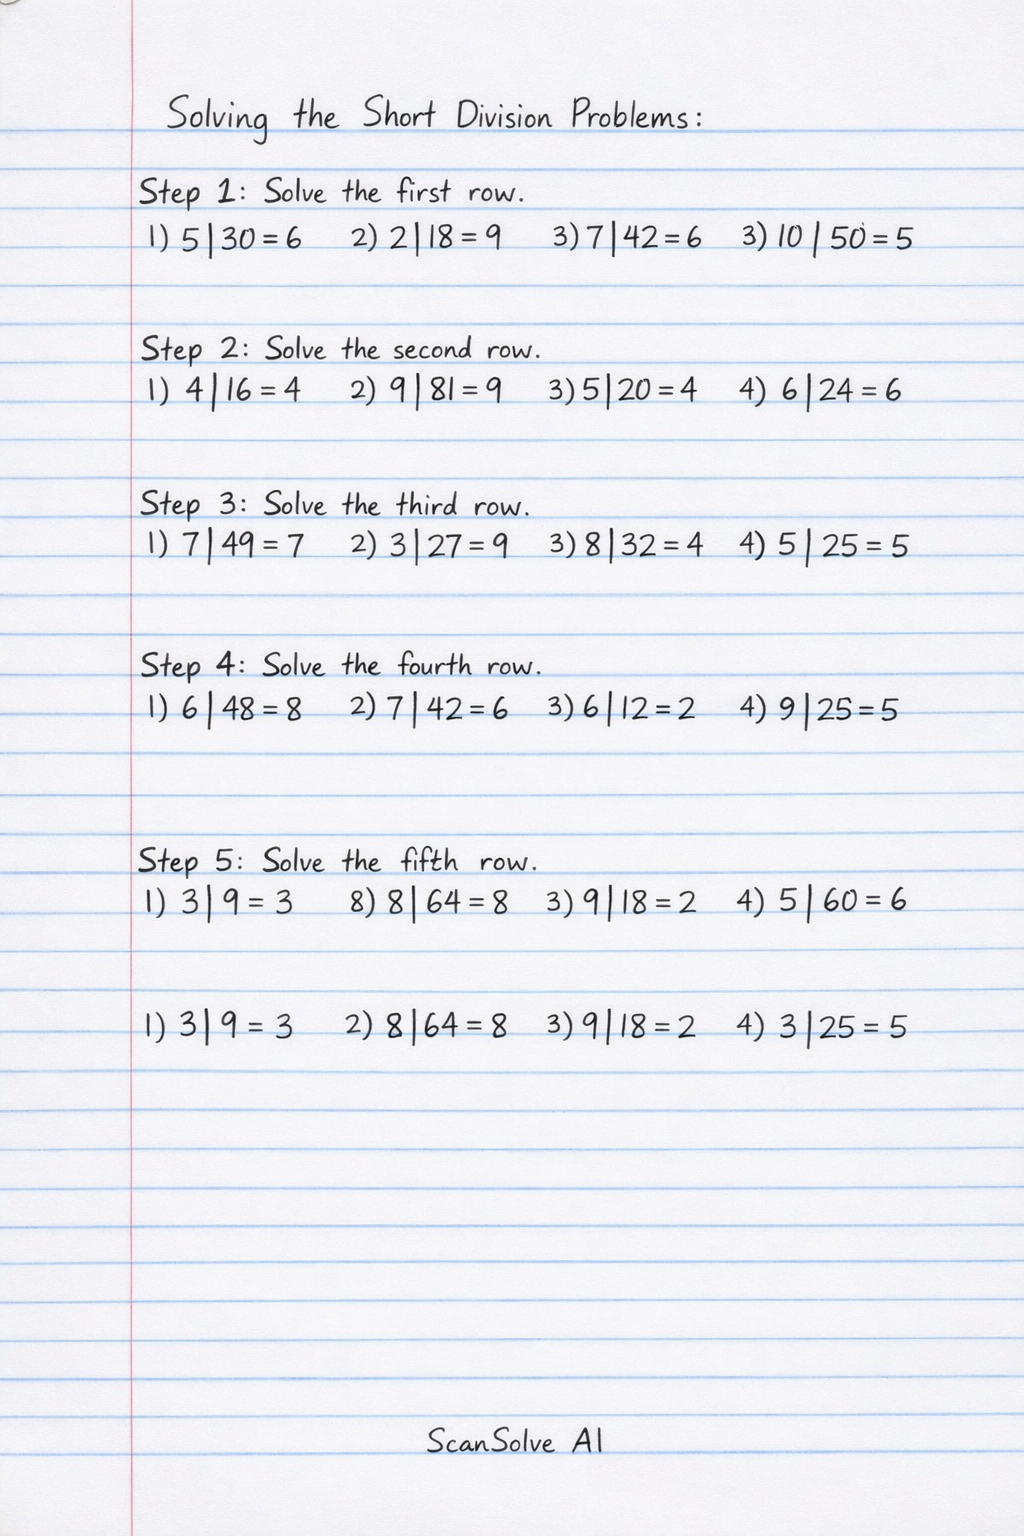 Solving the Short Division Problems:
Step 1: Solve the first row.
1) 5|30=6 2) 2|18=9 3) 7|42=6 3) 10|50=5
Step 2: Solve the second row.
1) 4|16=4 2) 9|81=9 3) 5|20=4 4) 6|24=6
Step 3: Solve the third row.
1) 7|49=7 2) 3|27=9 3) 8|32=4 4) 5|25=5
Step 4: Solve the fourth row.
1) 6|48=8 2) 7|42=6 3) 6|12=2 4) 9|25=5
Step 5: Solve the fifth row.
1) 3|9=3 8) 8|64=8 3) 9|18=2 4) 5|60=6
1) 3|9=3 2) 8|64=8 3) 9|18=2 4) 3|25=5
ScanSolve AI